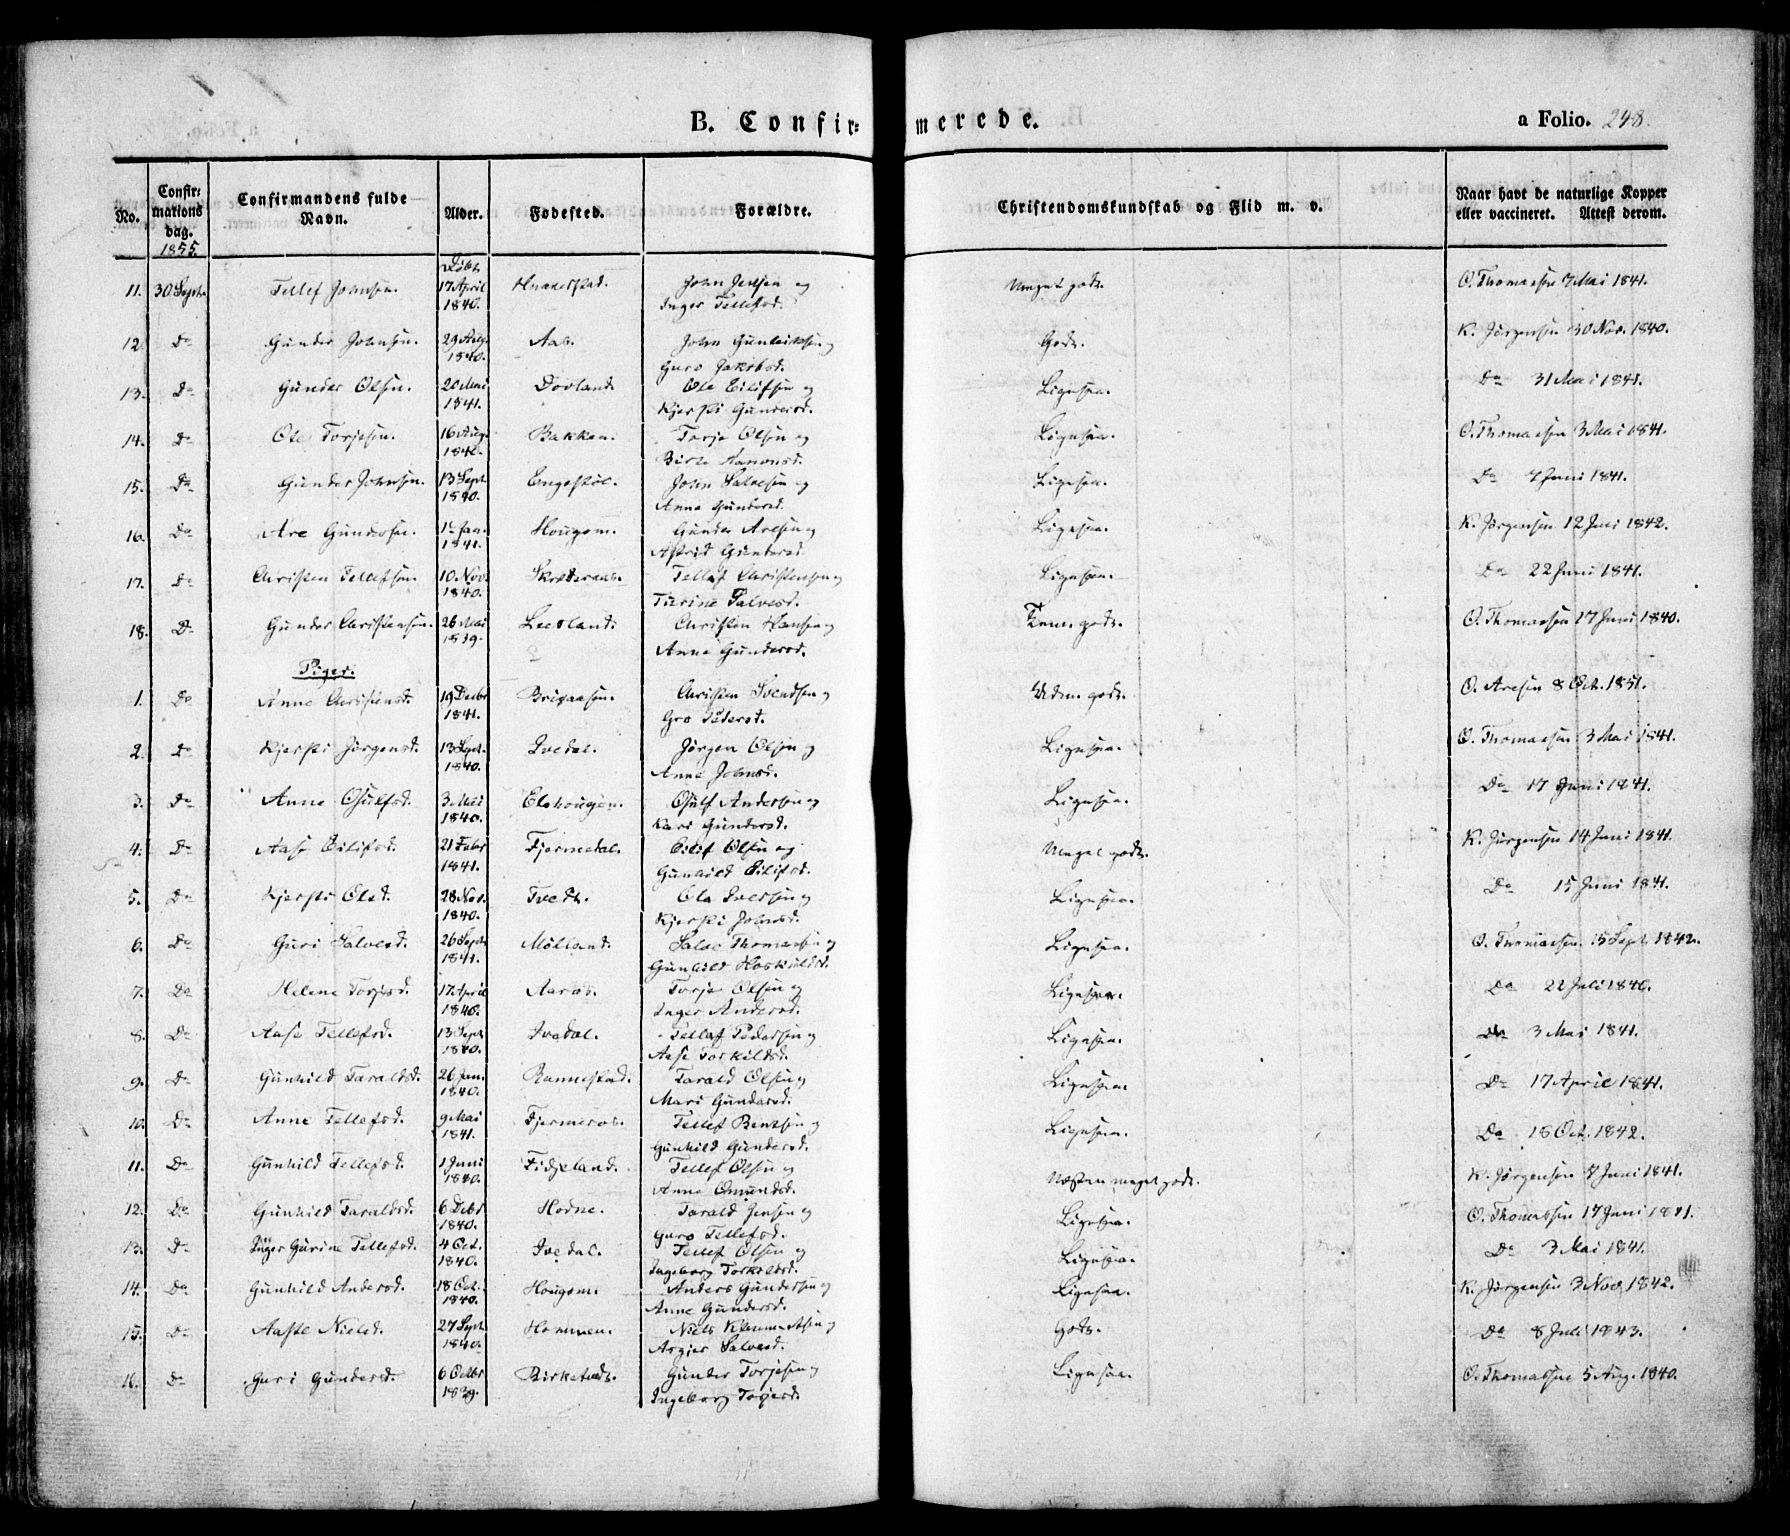 B. Confir= merede. a Folio. 248.
No. Confir= mations dag. Confirmandens fulde Navn. Alder. Fødested. Forældre. Christendomskundskab og Flid m. v. Naar havt de naturlige Kopper eller vaccineret. Attest derom.
1855.
Døbt
11. 30 Sept. Tellef Johnsen. 17 April 1840. John Jensen og Meget godt. O. Thomassen 7 Mai 1841.
Inger Tellefsd.
12 Do Gunder Johnsen. 29 Aug. 1840. Aas. John Gunleiksen og Godt. K. Jørgensen 30 Nov. 1840.
Guro Jakobsd.
13. Do Gunder Olsen. 20 Mai 1841. Dovland. Ole Eilifsen og Ligesaa. Do 31 Mai 1841.
Kjersti Gundersd.
14. Do Ole Torjesen. 16 Aug. 1840. Bakken. Torje Olsen og Ligesaa. O. Thomassen 3 Mai 1841.
Birte Aanonsd.
15. Do Gunder Johnsen. 13 Sept. 1840. Engestøl. John Salvesen og Ligesaa. Do 7 Juni 1841.
Anne Gundersd.
16. Do Are Gundersen. Jan. 1841. Hougom. Gunder Aresen og Ligesaa. K. Jørgensen 12 Juni 1842.
Astrid Gundersd.
17. Do Christen Tellefsen. 10 Nov. 1840. Skrøderaas. Tellef Christensen og Ligesaa. Do 22 Juni 1841.
Turine Salvesd.
18. Do Gunder Christensen. 26 Mai 1839. Leevland. Christen Hansen og Temmel. godt. O. Thomassen 17 Juni 1840.
Anne Gundersd.
Piger.
1. Do Anne Christensd. 19 Decbr 1841. Brigaasen. Christen Svendsen og godt. O. Aresen 8 Oct. 1851.
Gro Pedersd.
2. Do Kjersti Jørgensd. 13 Sept. 1840. Ivedal. Jørgen Olsen og Ligesaa. O. Thomassen 3 Mai 1841.
Anne Johnsd.
3. Do Anne Osulfsd. 3 Mai 1840. Elshougen. Osulf Andersen og Ligesaa. Do 17 Juni 1841.
Kari Gundersd.
4. Do Aase Eilifsd. 21 Febr 1841. Fjermedal. Eilif Olsen og Meget godt. K. Jørgensen 14 Juni 1841.
Gunhild Eilifsd.
5. Do Kjersti Olsd. 28 Nov. 1840. Tvedt. Ola Iversen og Ligesaa. Do 15 Juni 1841.
Kjersti Johnsd.
6. Do Guri Salvesd. 26 Sept. 1841. Mølland. Salve Thomassen og Ligesaa. O. Thomassen. 15 Sept. 1842.
Gunhild Hoskuldsd.
7. Do Helene Torjesd. 17 April 1840. Aaros. Torje Olsen og Ligesaa. Do 22 Juli 1840.
Inger Andersd.
8. Do Aase Tellefsd. 13 Sept. 1840. Ivedal. Tellef Pedersen og Ligesaa. Do 3 Mai 1841.
Aase Torkildsd.
9. Do Gunhild Taraldsd. 26 Jan. 1840. Rannestad. Tarald Olsen og Ligesaa. Do 17 April 1841.
Mari Gundersd.
10. Do Anne Tellefsd. 9 Mai 1841. Fjermeros. Tellef Bentsen og Ligesaa. Do 18 Oct. 1842.
Gunhild Gundersd.
11. Do Gunhild Tellefsd. 1 Juni 1840. Fidjeland. Tellef Olsen og Næsten meget godt. K. Jørgensen 7 Juni 1841.
Anne Omundsd.
12. Do Gunhild Taraldsd. 6 Debr 1840. Hodne. Tarald Jensen og Ligesaa. O. Thomassen 17 Juni 1841.
Guro Tellefsd.
13. Do Inger Gurine Tellefsd. 4 Oct. 1840. Ivedal. Tellef Olsen og Ligesaa. Do 3 Mai 1841.
Ingeborg Torkildsd.
14. Do Gunhild Andersd. 18 Oct. 1840. Hougom. Anders Gundersen og Ligesaa. K. Jørgensen 3 Nov. 1842.
Anne Gundersd.
15. Do Aaste Nielsd. 27 Sept. 1840. Hommen. Niels Klemmetsen og Godt. Do 8 Juli 1843.
Asgjer Salvesd.
16. Do Guri Gundersd. 6 Octbr 1839. Birketvedt. Gunder Torjesen og Ligesaa. O. Thomassen 5 Aug. 1840.
Ingeborg Torjesd.